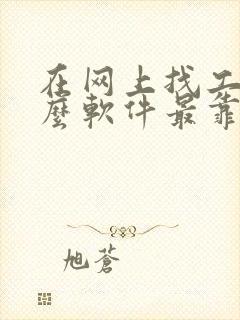 在网上找工
麼軟件最靠
旭蒼